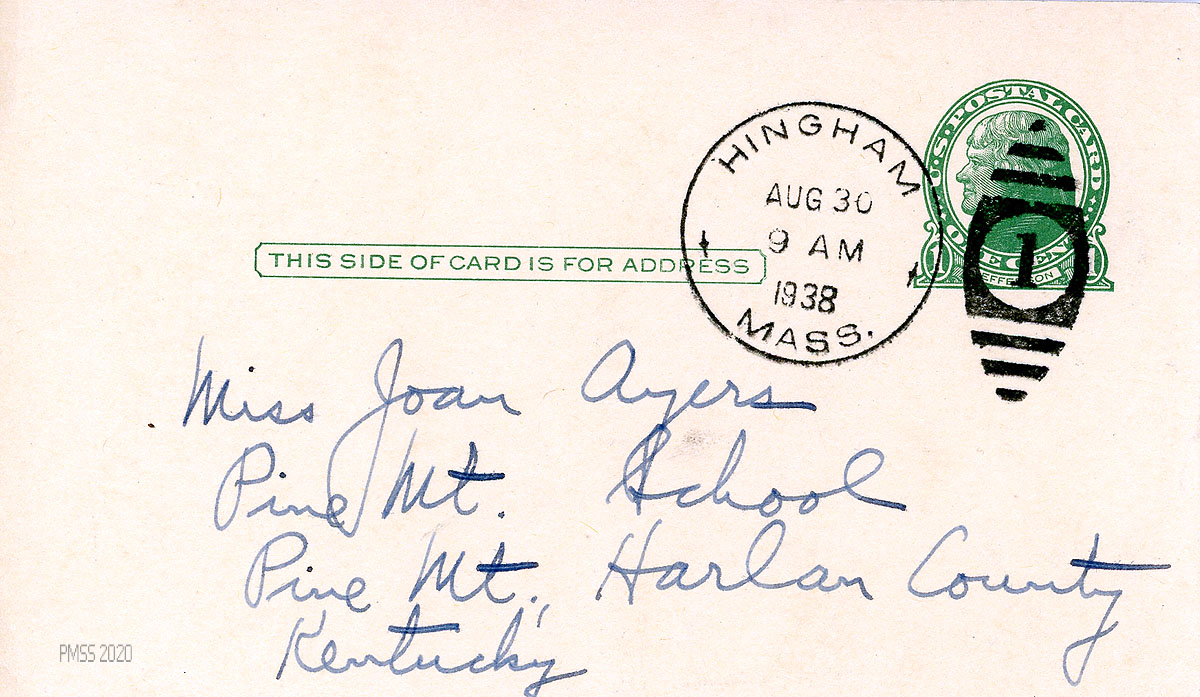 U.S. POSTAL CARD
HINGHAM
AUG 30
9 AM
1938
MASS.
1
THIS SIDE OF CARD IS FOR ADDRESS
Miss Joan Ayers
Pine Mt. School
Pine Mt., Harlan County
Kentucky
PMSS 2020